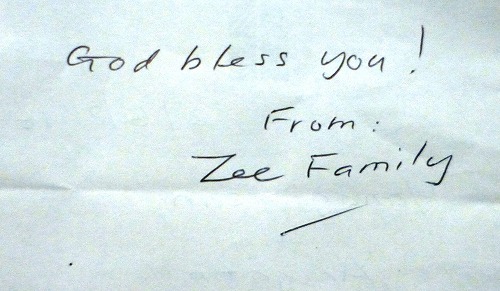 God bless you!
From:
Zee Family